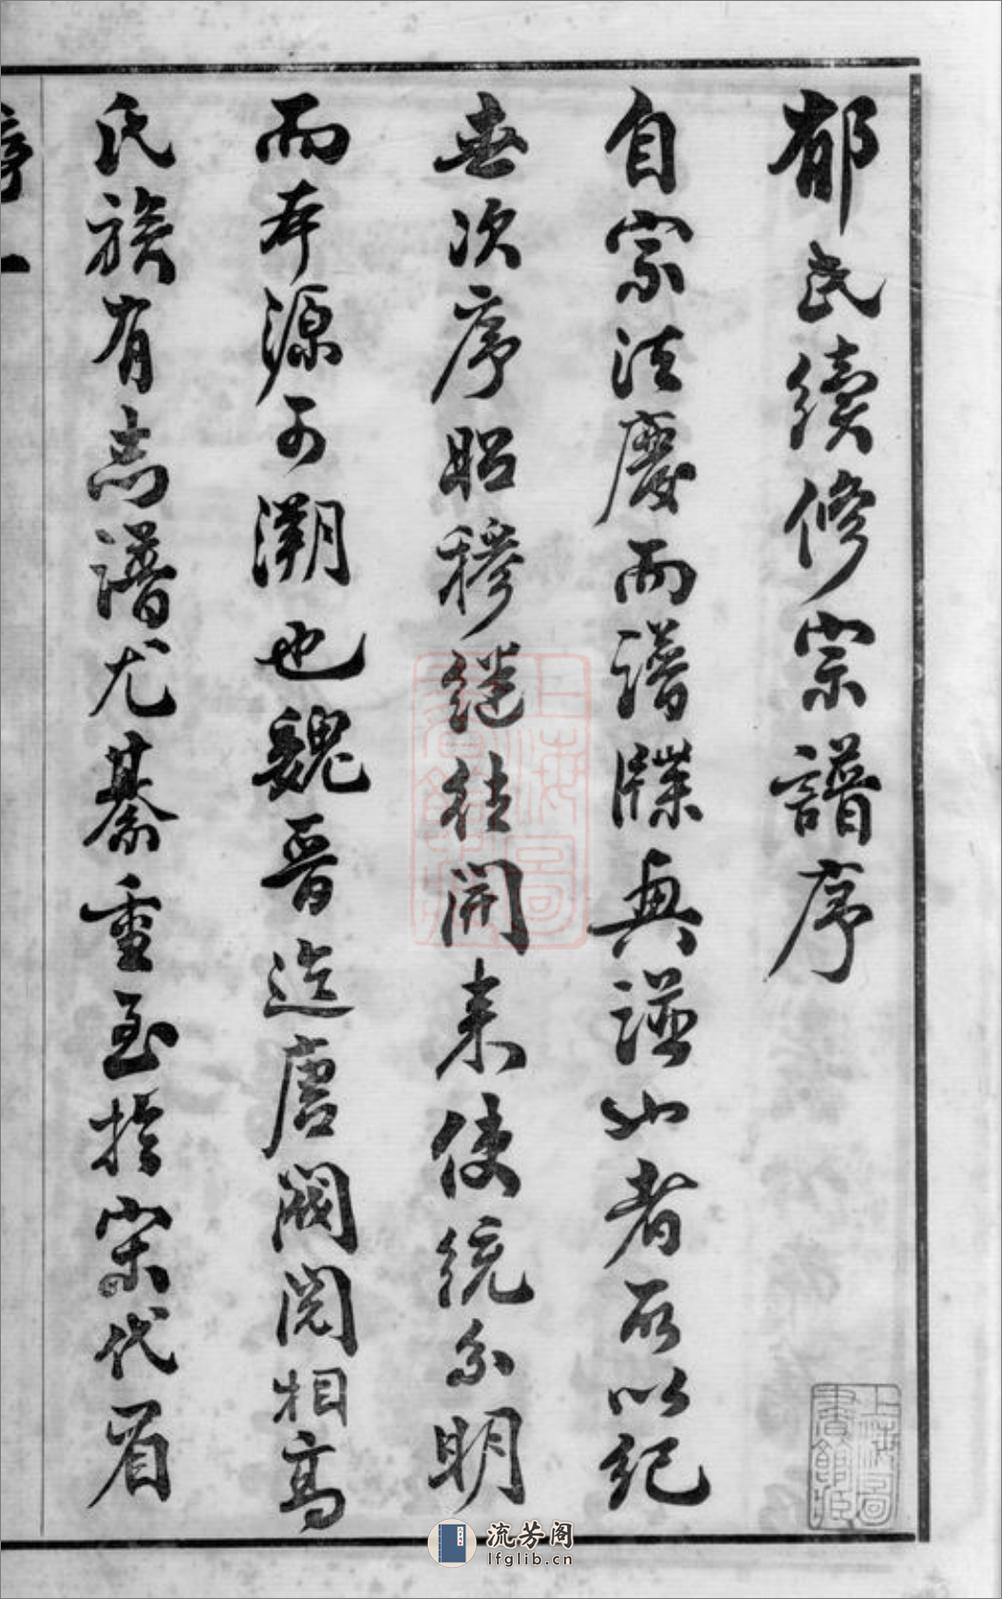 郁氏續修宗譜序
自宗法廢而譜牒興譜也者所以紀
世次序昭穆繼往開来使統系明
而本源可溯也魏晋迄唐閥閱相高
氏族有志譜尤綦重至於宋代眉
序一
上海圖書館藏
流芳阁
lfglib.cn